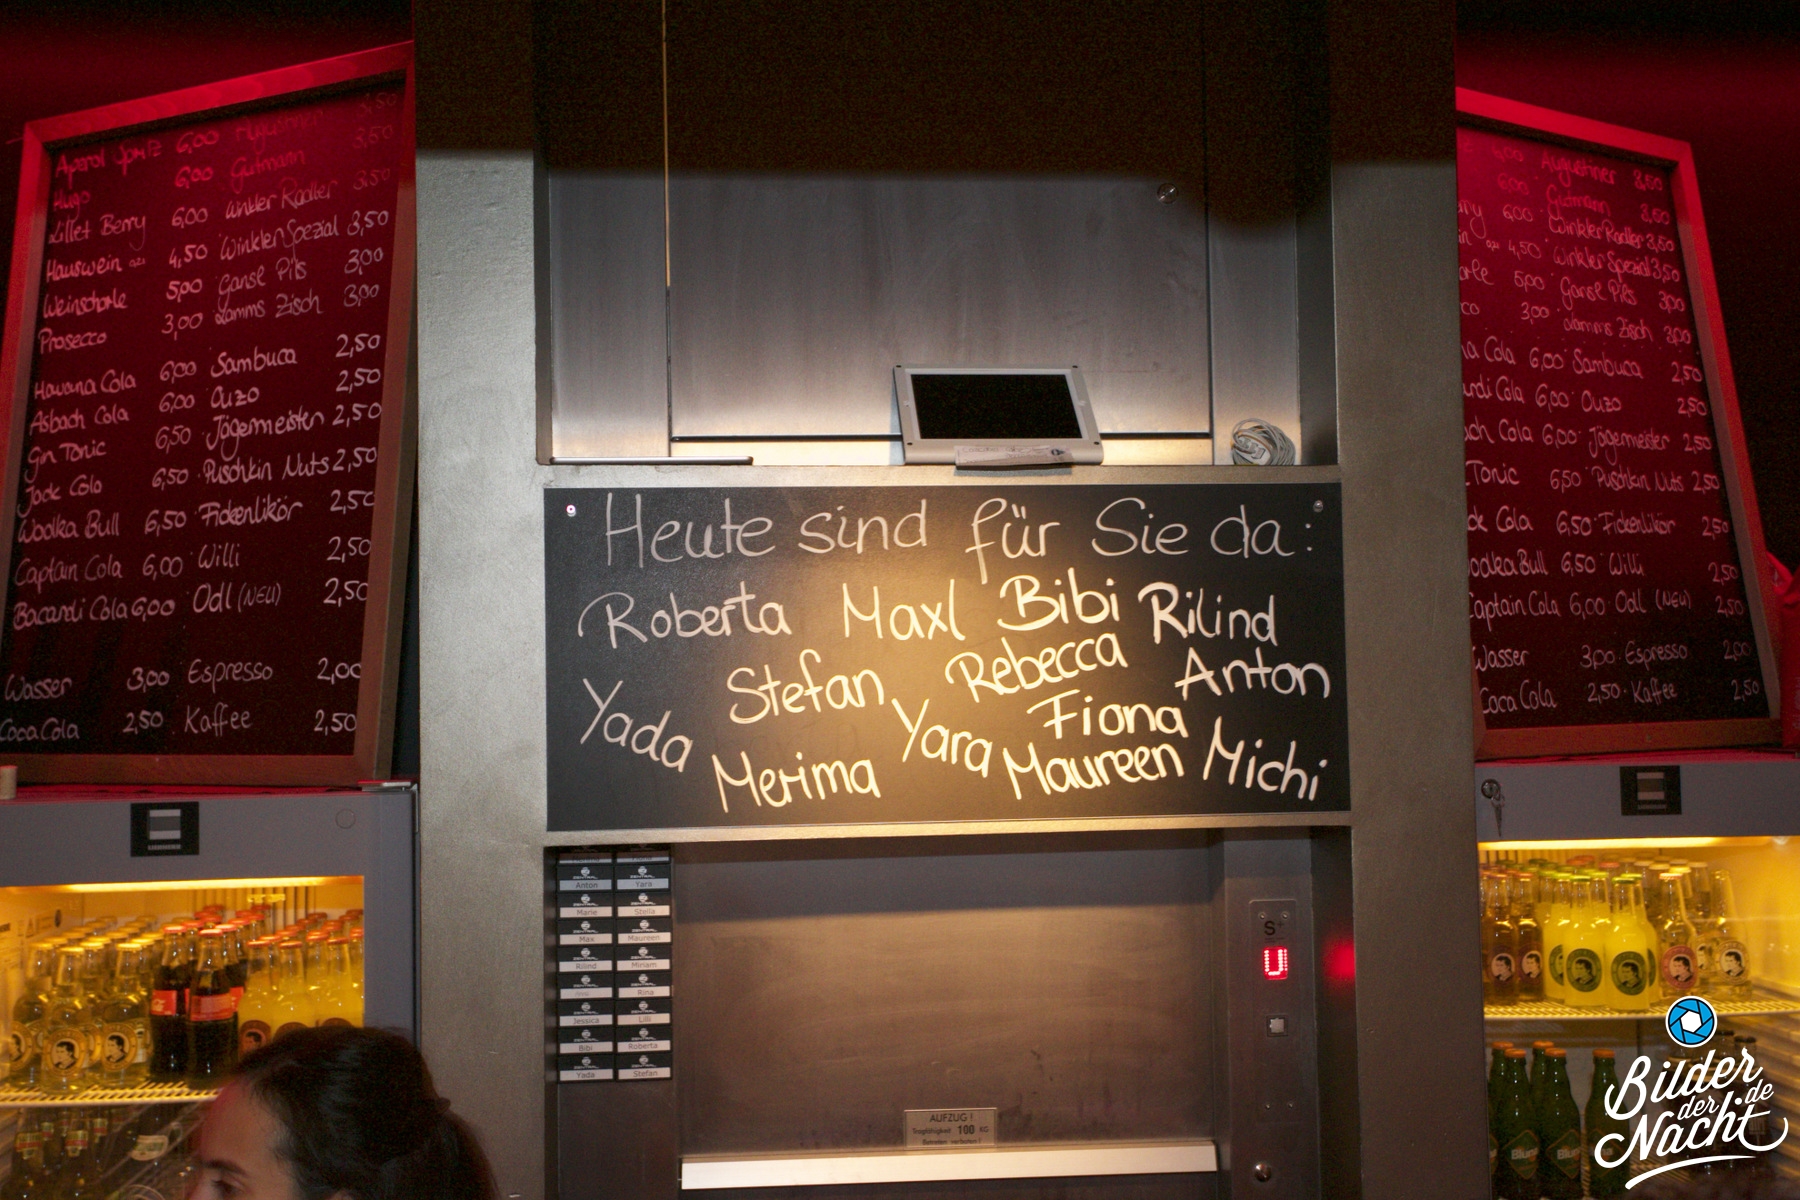 Aperol Spritz 6,00 Augustiner 3,50
Hugo 6,00 Gutmann 3,50
Lillet Berry 6,00 Winkler Radler 3,50
Hauswein 0,2l 4,50 Winkler Spezial 3,50
Weinschorle 5,00 Gansl Pils 3,00
Prosecco 3,00 Lamms Zisch 3,00
Havana Cola 6,00 Sambuca 2,50
Asbach Cola 6,00 Ouzo 2,50
Gin Tonic 6,50 Jägermeister 2,50
Jack Cola 6,50 Puschkin Nuts 2,50
Wodka Bull 6,50 Fickenlikör 2,50
Captain Cola 6,00 Willi 2,50
Bacardi Cola 6,00 Odl (NEU) 2,50
Wasser 3,00 Espresso 2,00
Coca Cola 2,50 Kaffee 2,50
Heute sind für Sie da:
Roberta Maxl Bibi Rilind
Stefan Rebecca Anton
Yada Yara Fiona
Merima Maureen Michi
6,00 Augustiner 3,50
6,00 Gutmann 3,50
6,00 Winkler Radler 3,50
4,50 Winkler Spezial 3,50
5,00 Gansl Pils 3,00
3,00 Lamms Zisch 3,00
Cola 6,00 Sambuca 2,50
Cola 6,00 Ouzo 2,50
Cola 6,00 Jägermeister 2,50
Tonic 6,50 Puschkin Nuts 2,50
Cola 6,50 Fickenlikör 2,50
Bull 6,50 Willi 2,50
Captain Cola 6,00 Odl (NEU) 2,50
Wasser 3,00 Espresso 2,00
Coca Cola 2,50 Kaffee 2,50
LIEBHERR
Anton Yara
Marie Stella
Max Maureen
Rilind Miriam
Rina
Jessica Lilli
Bibi Roberta
Yada Stefan
S+
U
AUFZUG!
Tragfähigkeit 100 KG
Betreten verboten!
Bilder
der
Nacht
.de